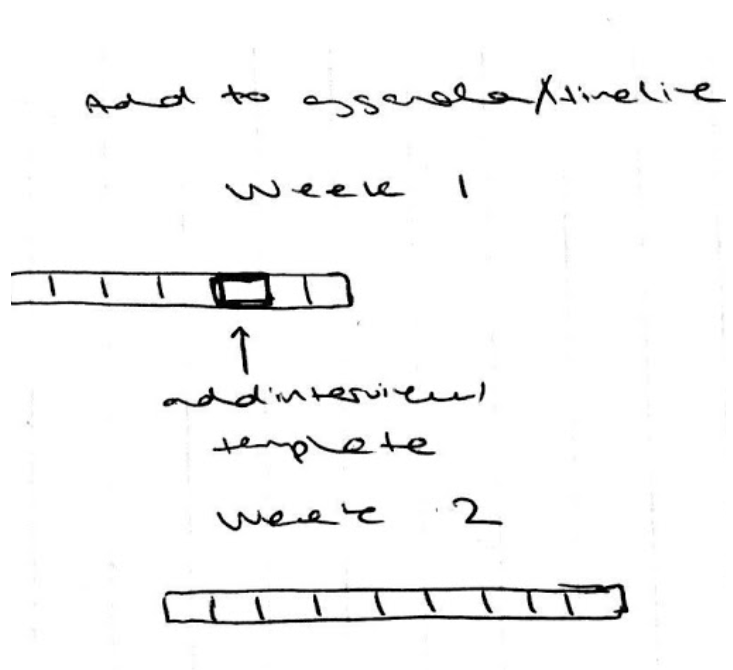 Add to aggenda/timeline
Week 1
add interview
template
Week 2